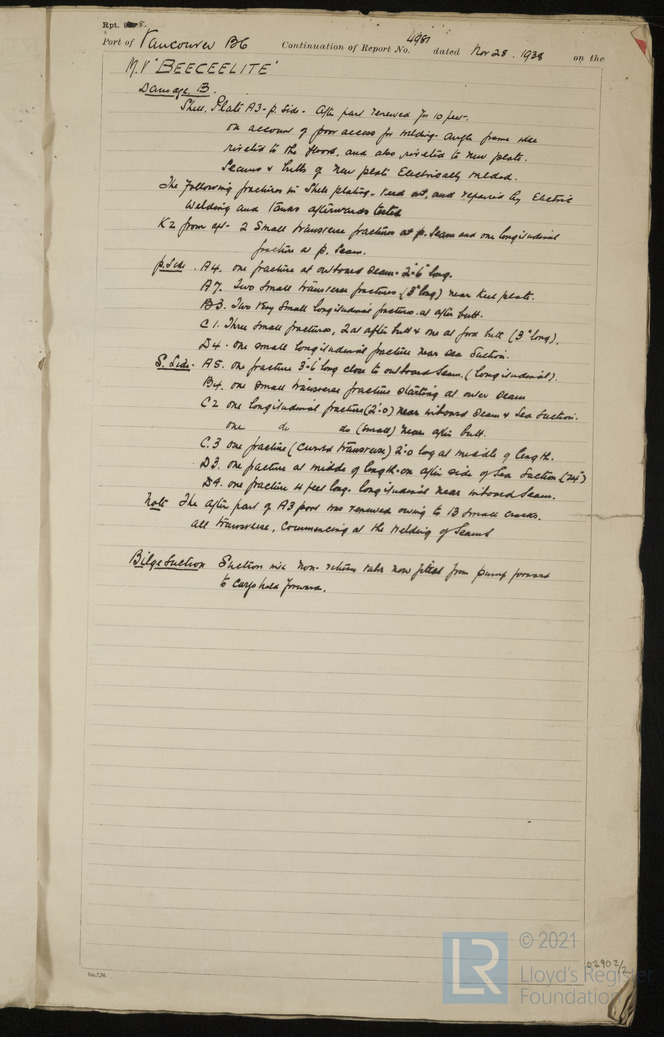 Rpt. 8.
Port of Vancouver BC Continuation of Report No. 4981 dated Nov 28. 1938 on the
M.V "BEECEELITE"
Damage B.
Shell Plate A3 - p. Side - Aft part renewed for 10 feet.
on account of poor access for welding - angle frame was
riveted to the floors, and also riveted to new plate.
Seams & butts of new plate Electrically welded.
The following fractures in Shell plating - Veed out, and repaired by Electric
Welding and tanks afterwards tested
K2 from aft - 2 Small transverse fractures at p. Seam and one longitudinal
fracture at p. Seam.
p. Side. A4. one fracture at outboard Seam - 2'-6" long.
A7. Two small transverse fractures (3" long) near Keel plate.
B3. Two Very Small longitudinal fractures at after butt.
C1. Three small fractures, 2 at after butt & one at ford butt (3" long).
D4. one small longitudinal fracture near Sea Suction.
S. Side. A5. one fracture 3'-6" long close to outboard Seam. (longitudinal).
B4. one small transverse fracture starting at outer Seam
C2 one longitudinal fracture (2'-0") near inboard Seam & Sea Suction.
one do do (small) near after butt.
C.3 one fracture (curved transverse) 2'-0 long at middle of length.
D3. one fracture at middle of length - on after side of Sea Suction (24")
D4. one fracture 4 feet long. longitudinal near inboard Seam.
Note The after part of A3 port was renewed owing to 13 small cracks.
all transverse, Commencing at the Welding of Seams
Bilge Suction Suction with non-return valve now fitted from pump forward
to cargo hold forward.
© 2021
LR Lloyd's Register
Foundation